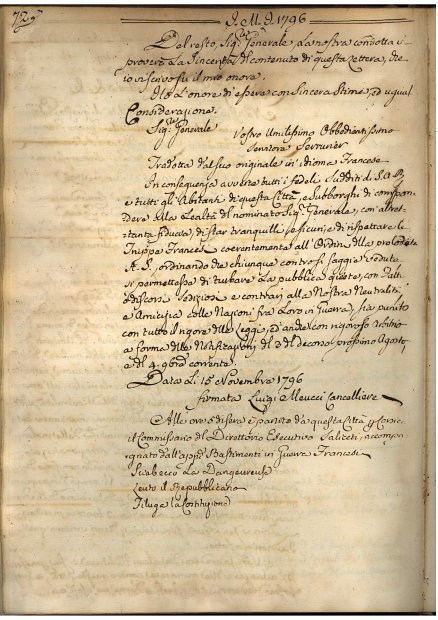 729
I. M. D. 1796
Del resto, Sig.r Generale, la nostra condotta vi
proverà la sincerità del contenuto di questa Lettera, che
io vi scrivo su il mio onore.
Hò L'onore di essere con sincera Stima, ed ugual
Considerazione.
Sig.r Generale Vostro Umilissimo Obbedientissimo
Servitore Serrurier
Tradotta dal suo originale in idioma Francese
In conseguenza avverte tutti i fedeli Sudditi di S. A. R.
e tutti gli Abitanti di questa Città, e Subborghi di corrispon=
dere alla Lealtà del nominato Sig.r Generale, con altret=
tanta fiducia, di star tranquilli, e sicuri, e di rispettare le
Truppe Francesi coerentemente all'Ordini della prelodata
A. S., ordinando che chiunque contro si saggie vedute
si permettesse di turbare la pubblica quiete, con fatti
e discorsi sediziosi e contrarj alla Nostra Neutralità
e Amicizia colle Nazioni fra Loro in Guerra, sia punito
con tutto il rigore delle Leggi, ed anche con rigoroso
a forma delle Notificazioni del dì 2 del decorso prossimo Agosto,
e del 4. corrente.
Data Li 15 Novembre 1796
firmata Luigi Meucci Cancelliere
Alle ore 5 di sera è partito da questa Città p Corsica
il Commissario del Direttorio Esecutivo Saliceti, accompa=
gnato dall'app.i Bastimenti in Guerra Francesi
Sciabecco La Dangereuse
il Repubblicano
Filuga la Costituzione